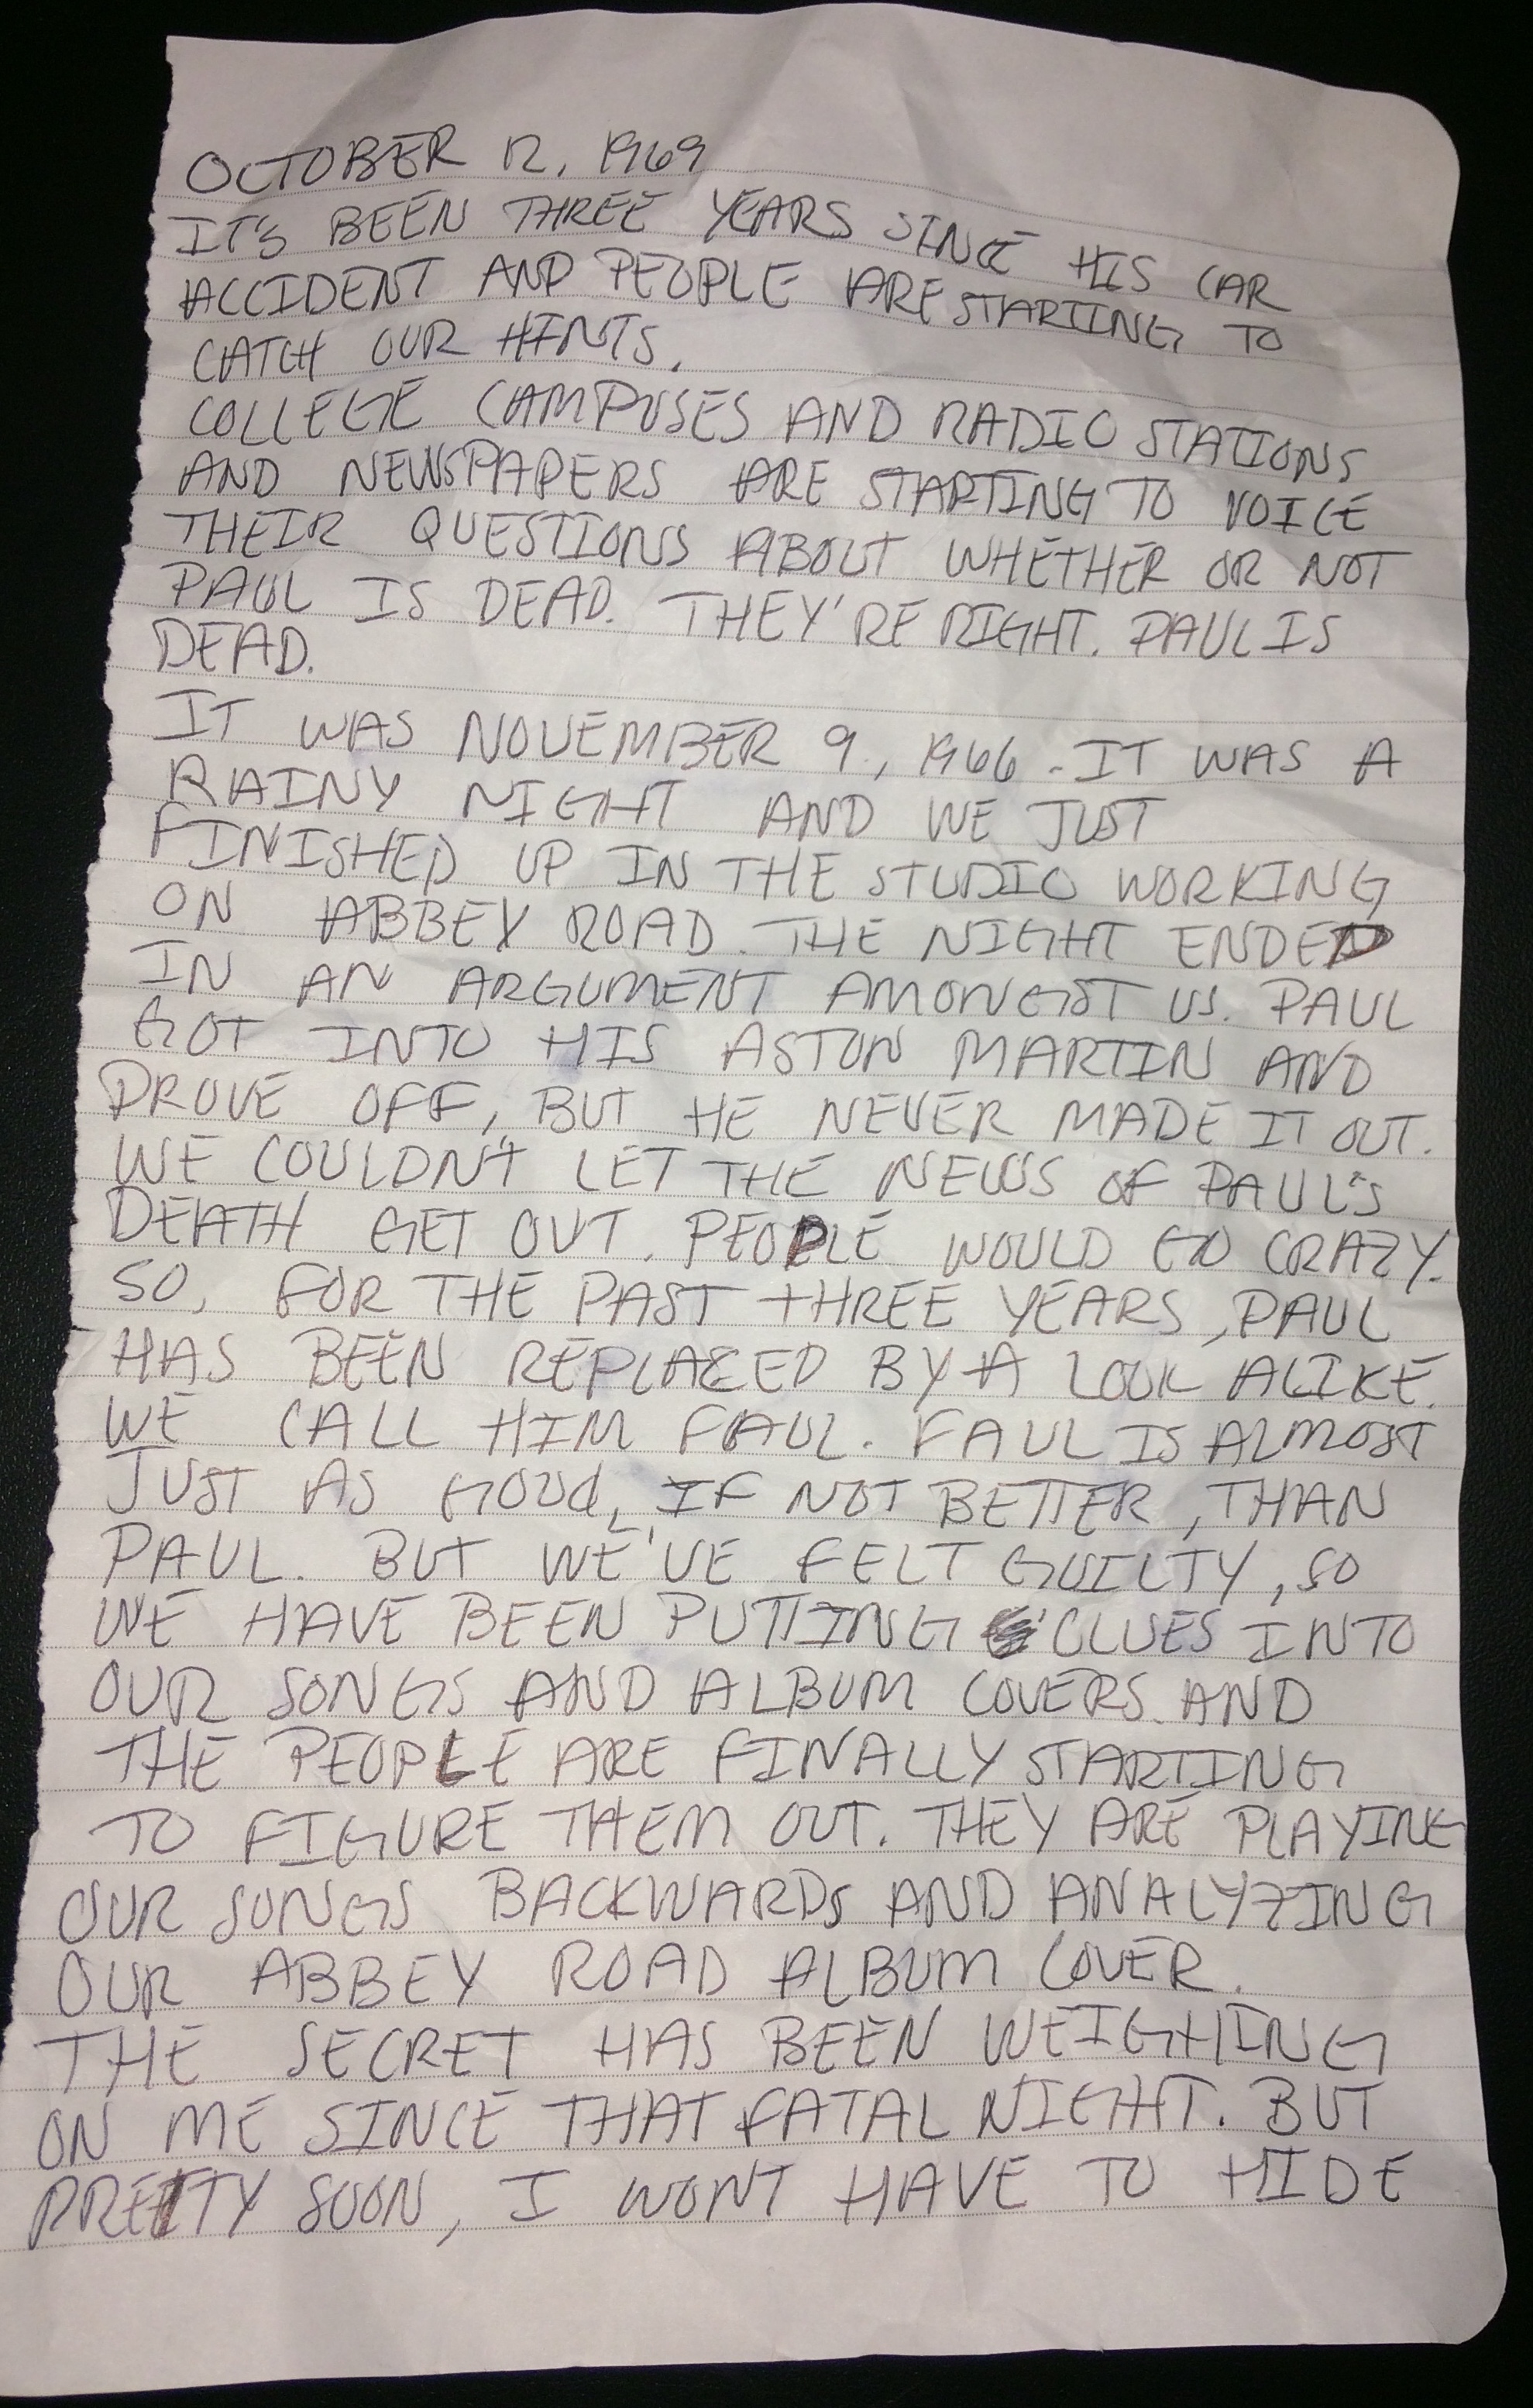 OCTOBER 12, 1969
IT'S BEEN THREE YEARS SINCE HIS CAR
ACCIDENT AND PEOPLE ARE STARTING TO
CATCH OUR HINTS.
COLLEGE CAMPUSES AND RADIO STATIONS
AND NEWSPAPERS ARE STARTING TO VOICE
THEIR QUESTIONS ABOUT WHETHER OR NOT
PAUL IS DEAD. THEY'RE RIGHT. PAUL IS
DEAD.
IT WAS NOVEMBER 9, 1966. IT WAS A
RAINY NIGHT AND WE JUST
FINISHED UP IN THE STUDIO WORKING
ON ABBEY ROAD. THE NIGHT ENDED
IN AN ARGUMENT AMONGST US. PAUL
GOT INTO HIS ASTON MARTIN AND
DROVE OFF, BUT HE NEVER MADE IT OUT.
WE COULDN'T LET THE NEWS OF PAUL'S
DEATH GET OUT. PEOPLE WOULD GO CRAZY.
SO, FOR THE PAST THREE YEARS, PAUL
HAS BEEN REPLACED BY A LOOK ALIKE.
WE CALL HIM FAUL. FAUL IS ALMOST
JUST AS GOOd, IF NOT BETTER, THAN
PAUL. BUT WE'VE FELT GUILTY, SO
WE HAVE BEEN PUTTING CLUES INTO
OUR SONGS AND ALBUM COVERS AND
THE PEOPLE ARE FINALLY STARTING
TO FIGURE THEM OUT. THEY ARE PLAYING
OUR SONGS BACKWARDS AND ANALYZING
OUR ABBEY ROAD ALBUM COVER.
THE SECRET HAS BEEN WEIGHING
ON ME SINCE THAT FATAL NIGHT. BUT
PRETTY SOON, I WONT HAVE TO HIDE